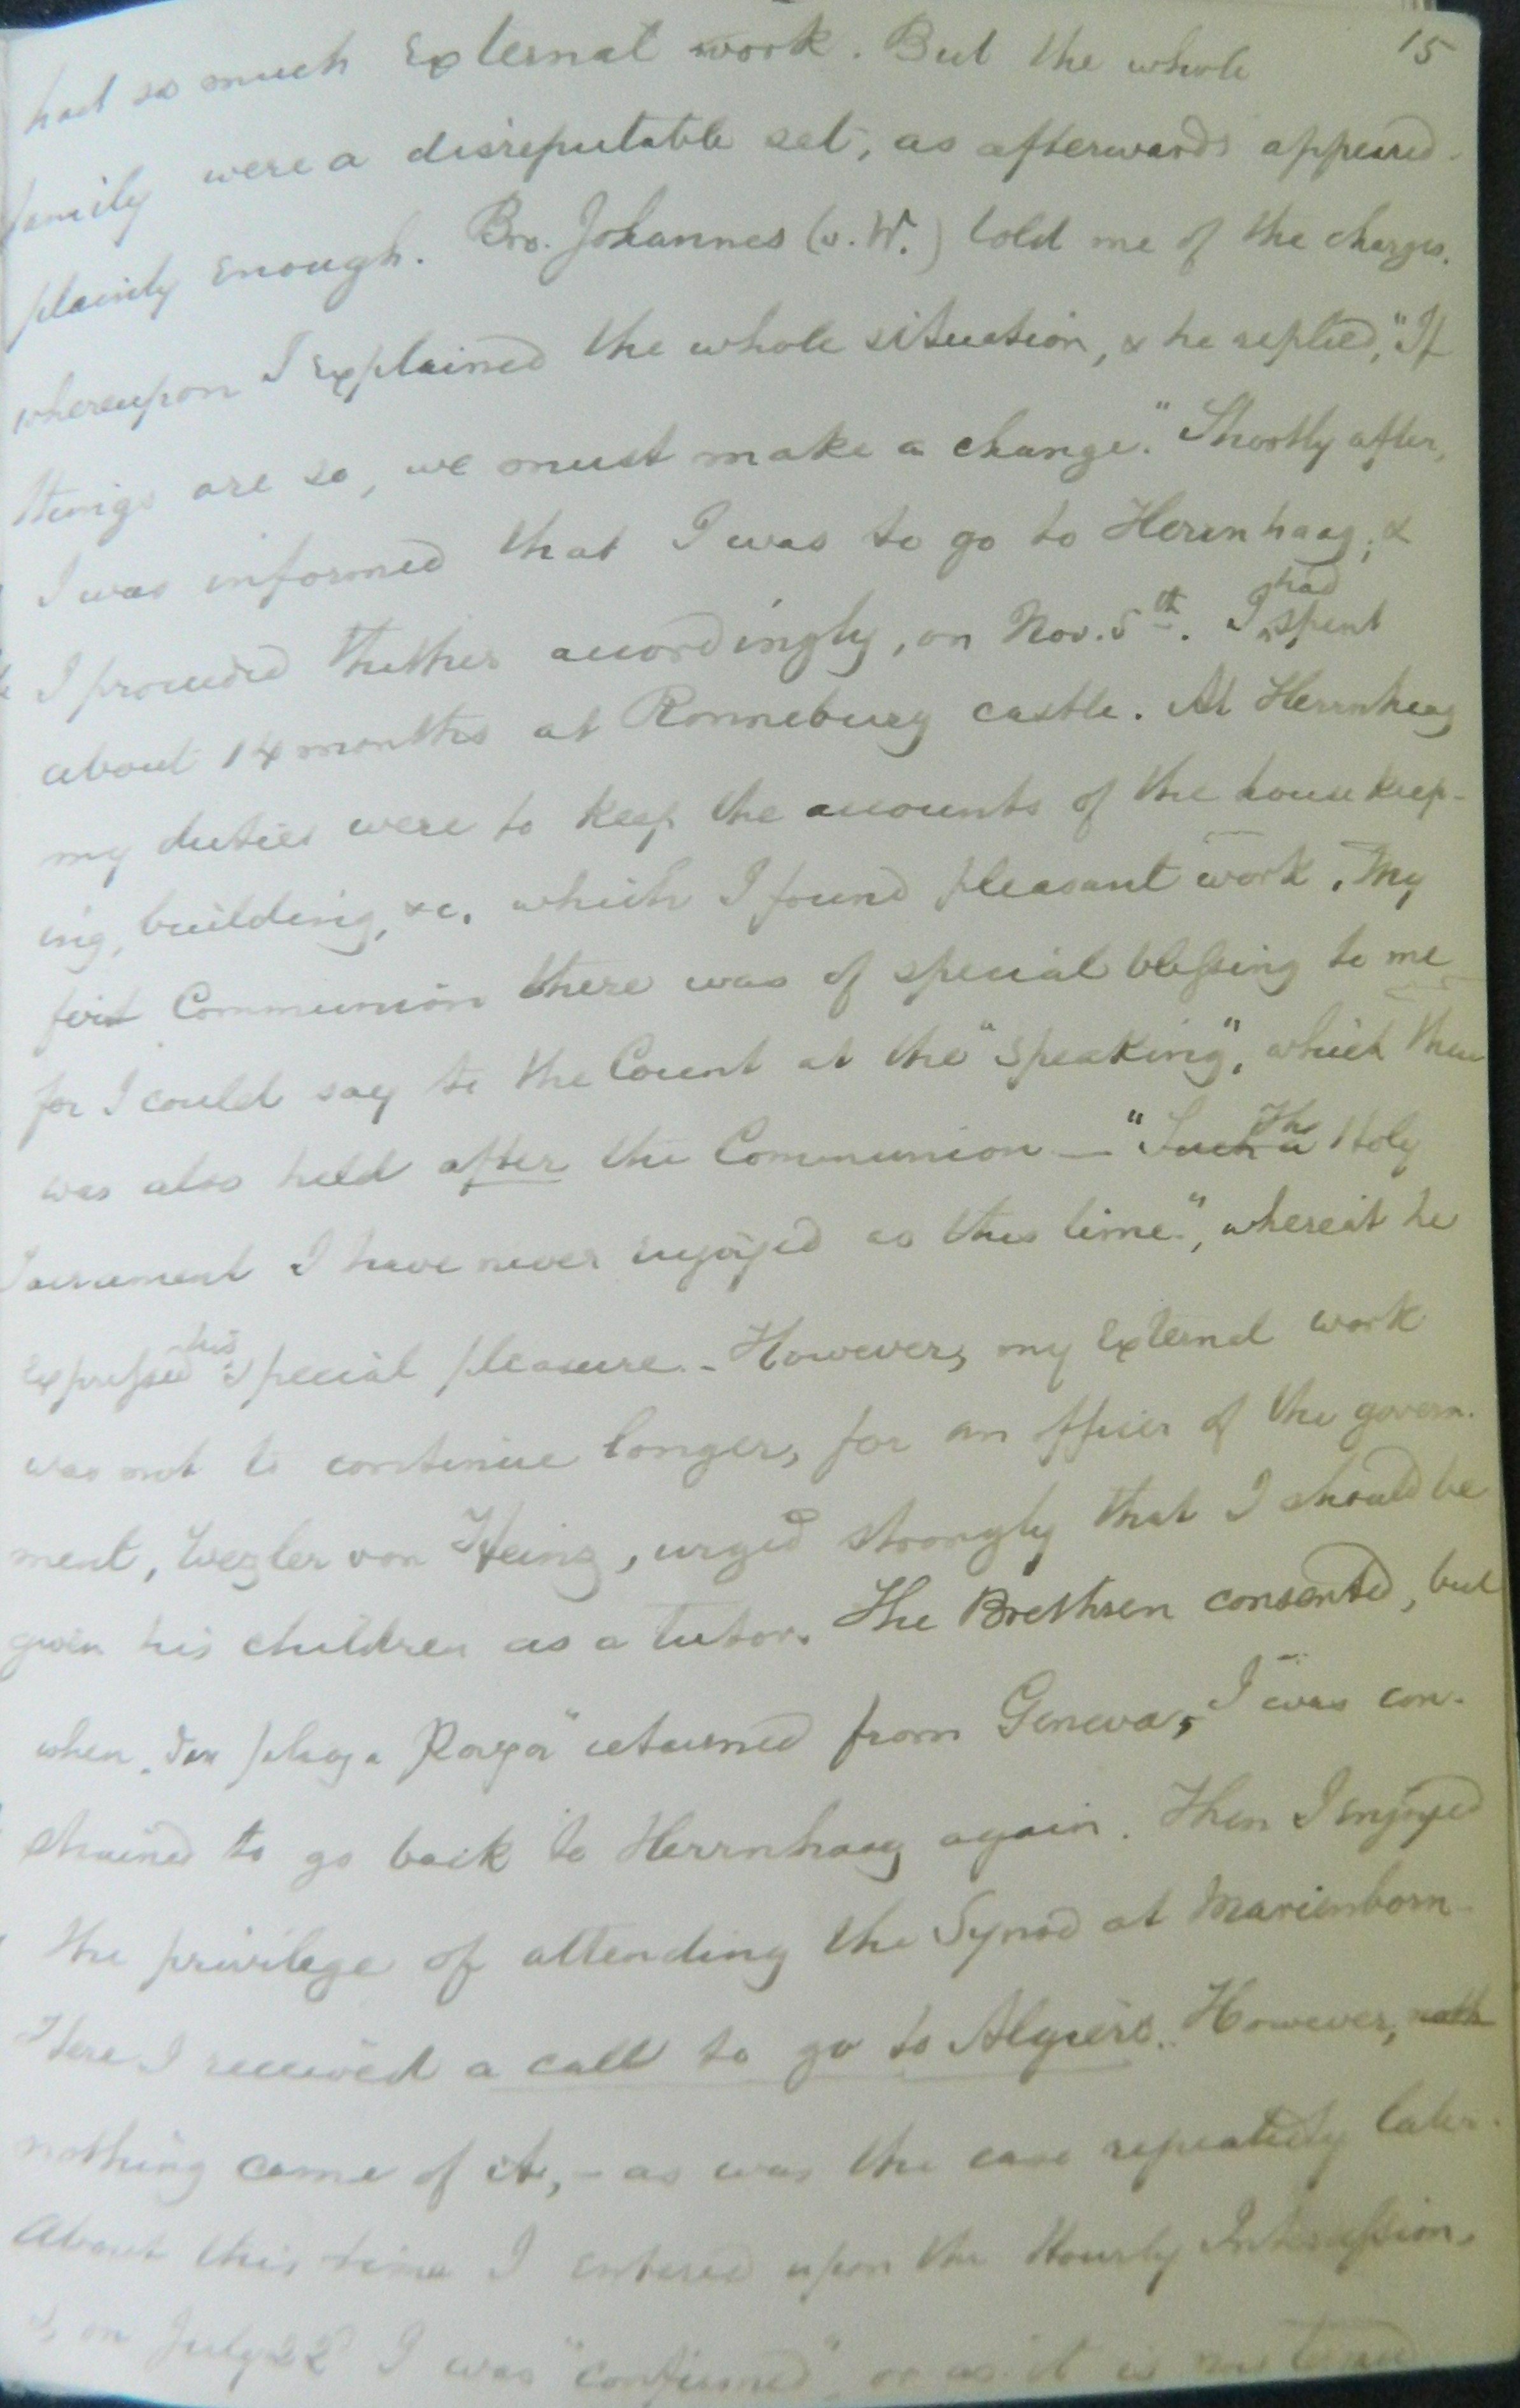 15
had so much external work. But the whole
family were a disreputable set, as afterwards appeared
plainly enough. Bro. Johannes (v. W.) told me of the charges.
whereupon I explained the whole situation, & he replied, "If
things are so, we must make a change." Shortly after,
I was informed that I was to go to Herrnhaag; &
I proceeded thither accordingly, on Nov. 5th. I had spent
about 14 months at Ronneburg castle. At Herrnhaag
my duties were to keep the accounts of the housekeep-
ing, building, &c. which I found pleasant work. My
first Communion there was of special blessing to me
for I could say to the Count at the "Speaking", which then
was also held after the Communion — "Such a The Holy
Sacrament I have never enjoyed as this time", whereat he
expressed his special pleasure. - However, my external work
was not to continue longer, for an officer of the govern-
ment, von Heinz, urged strongly that I should be
given his children as a tutor. The Brethren consented, but
when returned from Geneva, I was con-
strained to go back to Herrnhaag again. Then I enjoyed
the privilege of attending the Synod at Marienborn
Here I received a call to go to Algiers. However, noth
nothing came of it, - as was the case repeatedly later.
About this time I entered upon the Hourly Intercession,
&, on July 22 I was "confirmed", or as it is now termed